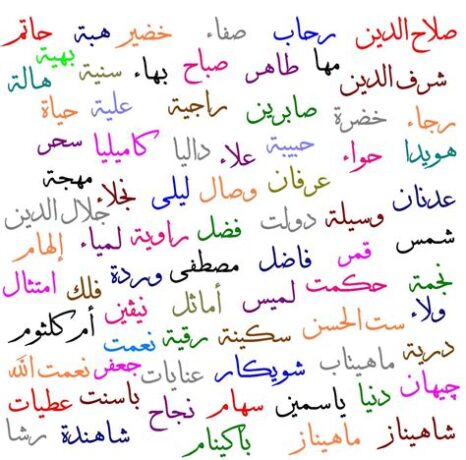 صلاح الدين رحاب صفاء خضير هبة حاتم
شرف الدين مها طاهر صباح بهاء سنية بهية هالة
رجاء خضرة صابرين راجية علية حياة
هويدا حواء حبيبة علاء داليا كاميليا سحر
عدنان عرفان وصال ليلى نجلاء مهجة
شمس وسيلة دولت فضل راوية لمياء جلال الدين إلهام
نجمة قمر فاضل مصطفى وردة فلك امتثال
ولاء حكمت لميس أماثل نيڤين أم كلثوم
درية ست الحسن سكينة رقية نعمت
چيهان ماهيتاب شويكار عنايات جعفر نعمت الله
دنيا ياسمين سهام نجاح باسنت عطيات
شاهيناز ماهيناز باكينام شاهندة رشا